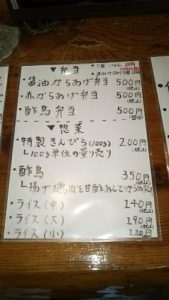 ▼弁当
・醤油からあげ弁当 500円(税込)
・赤からあげ弁当 500円(税込)
・酢鳥弁当 500円(税込)
▼惣菜
・特製きんぴら(100g) 200円(税込)
└100g単位の量り売り
・酢鳥 350円(税込)
└揚げ鶏肉を甘酢あんで
・ライス(中) 140円(税込)
・ライス(大) 190円(税込)
・ライス(小) 120円